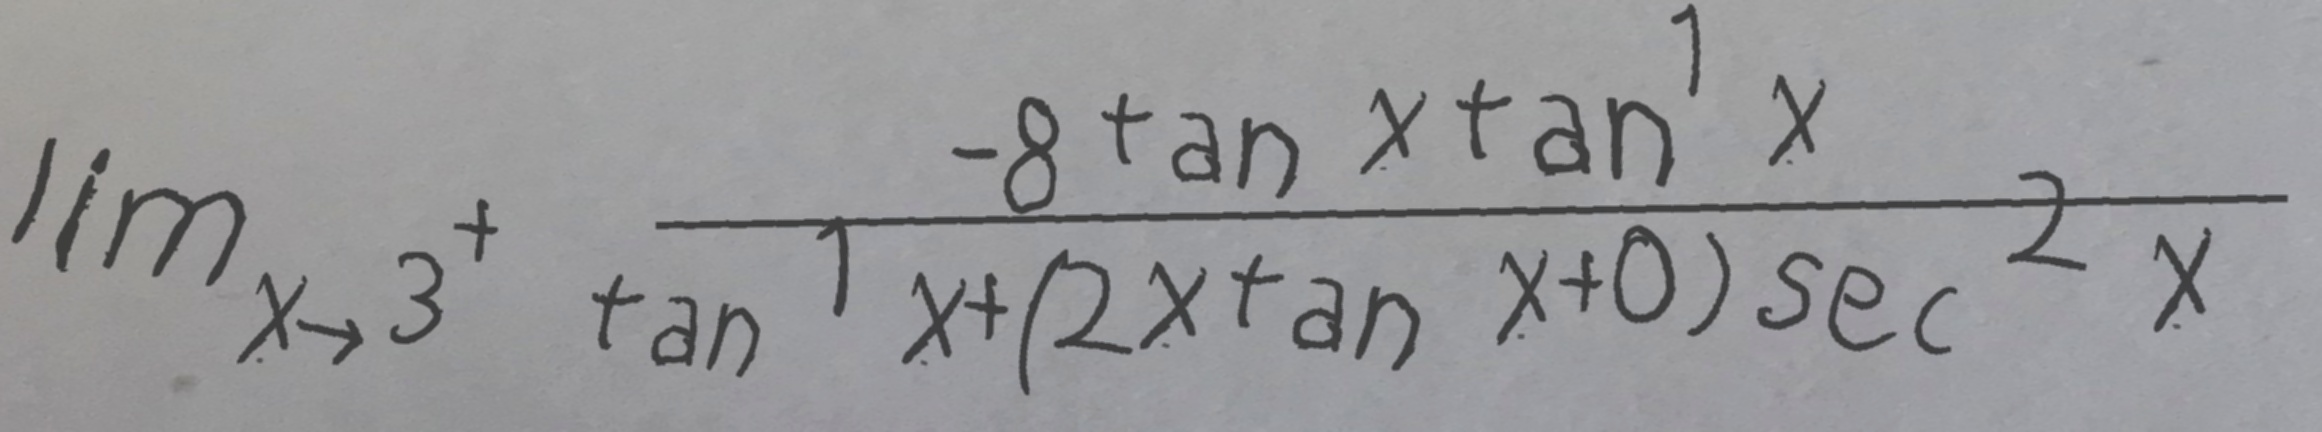 \lim_{x \to 3^+} \frac{-8 \tan x \tan^1 x}{\tan^1 x + (2x \tan x + 0) \sec^2 x}